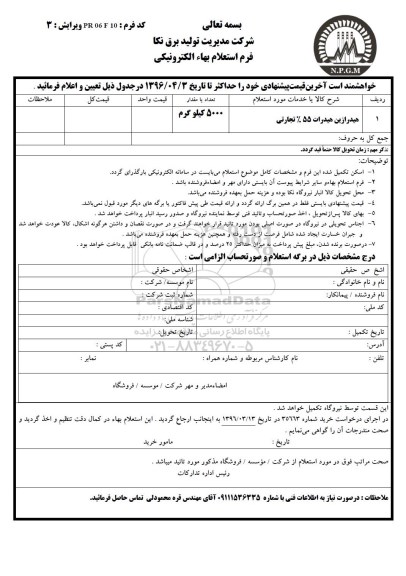 بسمه تعالی
کد فرم : PR 06 F 10 ویرایش : ۳
شرکت مدیریت تولید برق نکا
فرم استعلام بهاء الکترونیکی
N.P.G.M
خواهشمند است آخرین قیمت پیشنهادی خود را حداکثر تا تاریخ ۱۳۹۶/۰۴/۳ در جدول ذیل تعیین و اعلام فرمائید .
ردیف شرح کالا یا خدمات مورد استعلام تعداد یا مقدار قیمت واحد قیمت کل ملاحظات
۱ هیدرازین هیدرات ۵۵ ٪ تجارتی ۵۰۰۰ کیلو گرم
جمع کل به حروف:
تذکر مهم : زمان تحویل کالا حتماً قید گردد.
توضیحات:
۱- اسکن تکمیل شده این فرم و مشخصات کامل موضوع استعلام می‌بایست در سامانه الکترونیکی بارگذاری گردد.
۲- فرم استعلام بهاء و سایر شرایط پیوست آن بایستی دارای مهر و امضاء فروشنده باشد .
۳- محل تحویل کالا انبار نیروگاه نکا بوده و هزینه حمل بعهده فروشنده می‌باشد.
۴- قیمت پیشنهادی بایستی فقط در همین برگه ارائه گردد و ارائه قیمت طی پیش فاکتور یا برگه های دیگر مورد قبول نمی‌باشد.
۵- بهای کالا پس از تحویل ، اخذ صورتحساب و تائید فنی توسط نماینده نیروگاه و صدور رسید انبار پرداخت خواهد شد .
۶- اجناس تحویلی در نیروگاه در صورت اصلی بودن مورد تائید قرار خواهد گرفت و در صورت نقصان و داشتن هرگونه اشکال، کالا عودت خواهد شد
و جبران خسارت ایجاد شده شامل فرصت از دست رفته و همچنین هزینه حمل بعهده فروشنده می‌باشد .
۷- درصورت برنده شدن، مبلغ پیش پرداخت به میزان حداکثر ۲۵ درصد و در قالب ضمانت نامه بانکی قابل پرداخت خواهد بود .
درج مشخصات ذیل در برگه استعلام و صورتحساب الزامی است :
اشخاص حقیقی اشخاص حقوقی
نام و نام خانوادگی : نام موسسه/ شرکت :
فروشنده / پیمانکار: شماره ثبت شرکت :
کد ملی: کد اقتصادی :
شناسه ملی:
تاریخ تکمیل : تاریخ تحویل:
آدرس: کد پستی :
تلفن : نام کارشناس مربوطه و شماره همراه : نمابر :
امضاء مدیر و مهر شرکت / موسسه / فروشگاه
ParsNamadData
۰۲۱-۸۸۳۴۹۶۷۰-۵
این قسمت توسط نیروگاه تکمیل خواهد شد .
در اجرای درخواست خرید شماره ۳۵۶۶۳ در تاریخ ۱۳۹۶/۰۳/۱۳ به اینجانب ارجاع گردید . این استعلام بهاء در کمال دقت تنظیم و اخذ گردید و
صحت مندرجات آن را گواهی می‌نمایم .
تاریخ : مامور خرید
صحت مراتب فوق در مورد استعلام از شرکت / مؤسسه / فروشگاه مذکور مورد تائید میباشد .
رئیس اداره تدارکات
ملاحظات : درصورت نیاز به اطلاعات فنی با شماره ۰۹۱۱۱۵۳۶۳۳۵ آقای مهندس قره محمودلی تماس حاصل فرمائید.